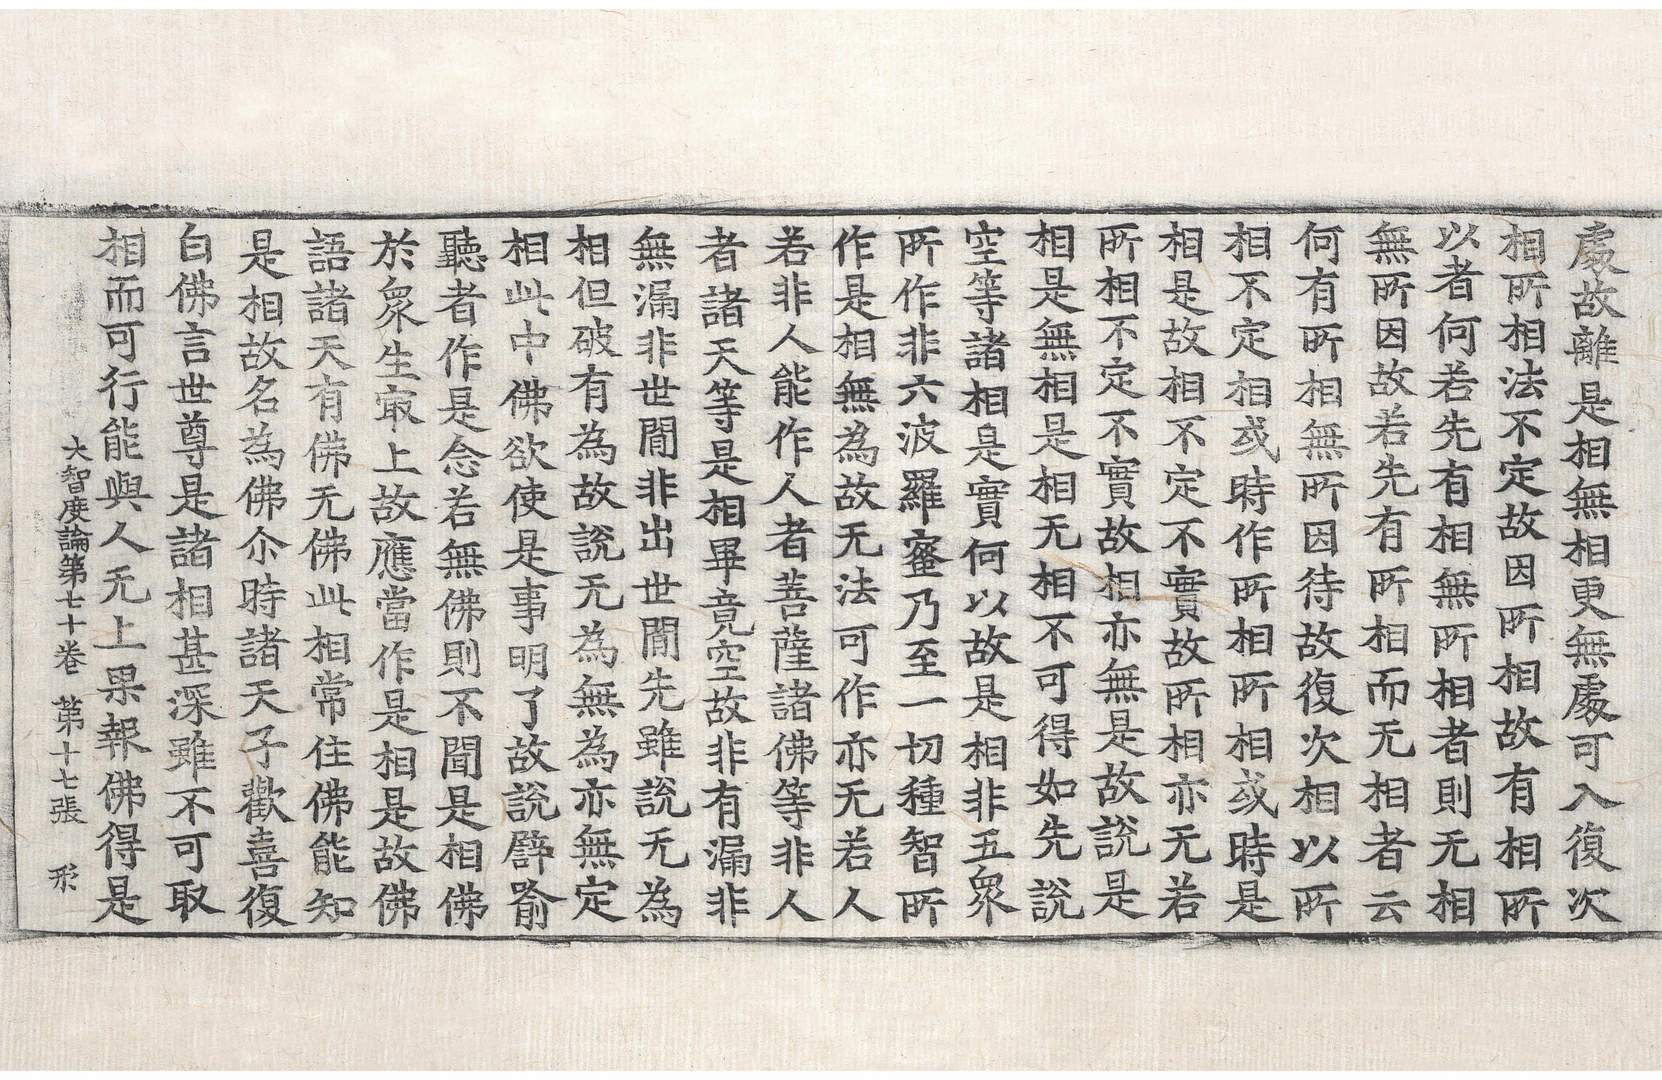 處故離是相無相更無處可入復次
相所相法不定故因所相故有相所
以者何若先有相無所相者則无相
無所因故若先有所相而无相者云
何有所相無所因待故復次相以所
相不定相或時作所相所相或時是
相是故相不定不實故所相亦无若
所相不定不實故相亦無是故說是
相是無相是相无相不可得如先說
空等諸相是實何以故是相非五衆
所作非六波羅蜜乃至一切種智所
作是相無為故无法可作亦无若人
若非人能作人者菩薩諸佛等非人
者諸天等是相畢竟空故非有漏非
無漏非世間非出世間先雖說无為
相但破有為故說无為無為亦無定
相此中佛欲使是事明了故說譬喻
聽者作是念若無佛則不聞是相佛
於衆生㝡上故應當作是相是故佛
語諸天有佛无佛此相常住佛能知
是相故名為佛尒時諸天子歡喜復
白佛言世尊是諸相甚深雖不可取
相而可行能與人无上果報佛得是
大智度論第七十卷 第十七張 形